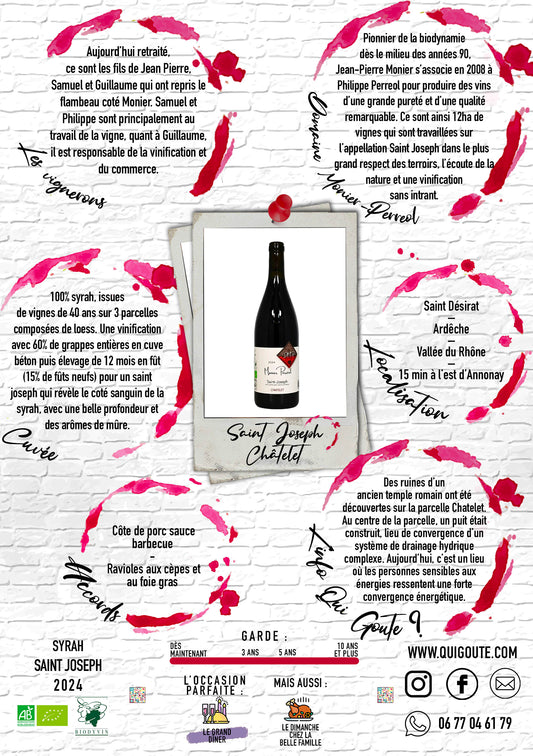 Aujourd'hui retraité,
ce sont les fils de Jean Pierre,
Samuel et Guillaume qui ont repris le
flambeau coté Monier. Samuel et
Philippe sont principalement au
travail de la vigne, quant à Guillaume,
il est responsable de la vinification et
du commerce.
Les vignerons
Pionnier de la biodynamie
dès le milieu des années 90,
Jean-Pierre Monier s'associe en 2008 à
Philippe Perreol pour produire des vins
d'une grande pureté et d'une qualité
remarquable. Ce sont ainsi 12ha de
vignes qui sont travaillées sur
l'appellation Saint Joseph dans le plus
grand respect des terroirs, l'écoute de la
nature et une vinification
sans intrant.
Domaine Monier-Perreol
100% syrah, issues
de vignes de 40 ans sur 3 parcelles
composées de loess. Une vinification
avec 60% de grappes entières en cuve
béton puis élevage de 12 mois en fût
(15% de fûts neufs) pour un saint
joseph qui révèle le coté sanguin de la
syrah, avec une belle profondeur et
des arômes de mûre.
Cuvée
Saint Joseph
Châtelet
Saint Désirat
Ardêche
Vallée du Rhône
15 min à l'est d'Annonay
Localisation
Côte de porc sauce
barbecue
Ravioles aux cèpes et
au foie gras
Accords
Des ruines d'un
ancien temple romain ont été
découvertes sur la parcelle Chatelet.
Au centre de la parcelle, un puit était
construit, lieu de convergence d'un
système de drainage hydrique
complexe. Aujourd'hui, c'est un lieu
où les personnes sensibles aux
énergies ressentent une forte
convergence énergétique.
L'info Qui Goute ?
SYRAH
SAINT JOSEPH
2024
AB
BIODYVIN
GARDE :
DÈS
MAINTENANT
3 ANS
5 ANS
10 ANS
ET PLUS
L'OCCASION
PARFAITE :
LE GRAND
DÎNER
MAIS AUSSI :
LE DIMANCHE
CHEZ LA
BELLE FAMILLE
WWW.QUIGOUTE.COM
06 77 04 61 79